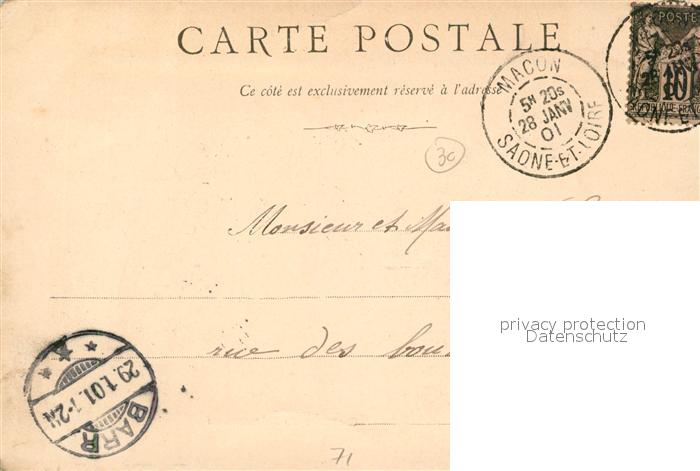 CARTE POSTALE
Ce côté est exclusivement réservé à l'adresse
MACON
5H 20S
28 JANV
01
SAONE-ET-LOIRE
POSTE
10
REPUBLIQUE FRANC
3c
Monsieur et
rue des
privacy protection
Datenschutz
29.1.01.
BARR
71